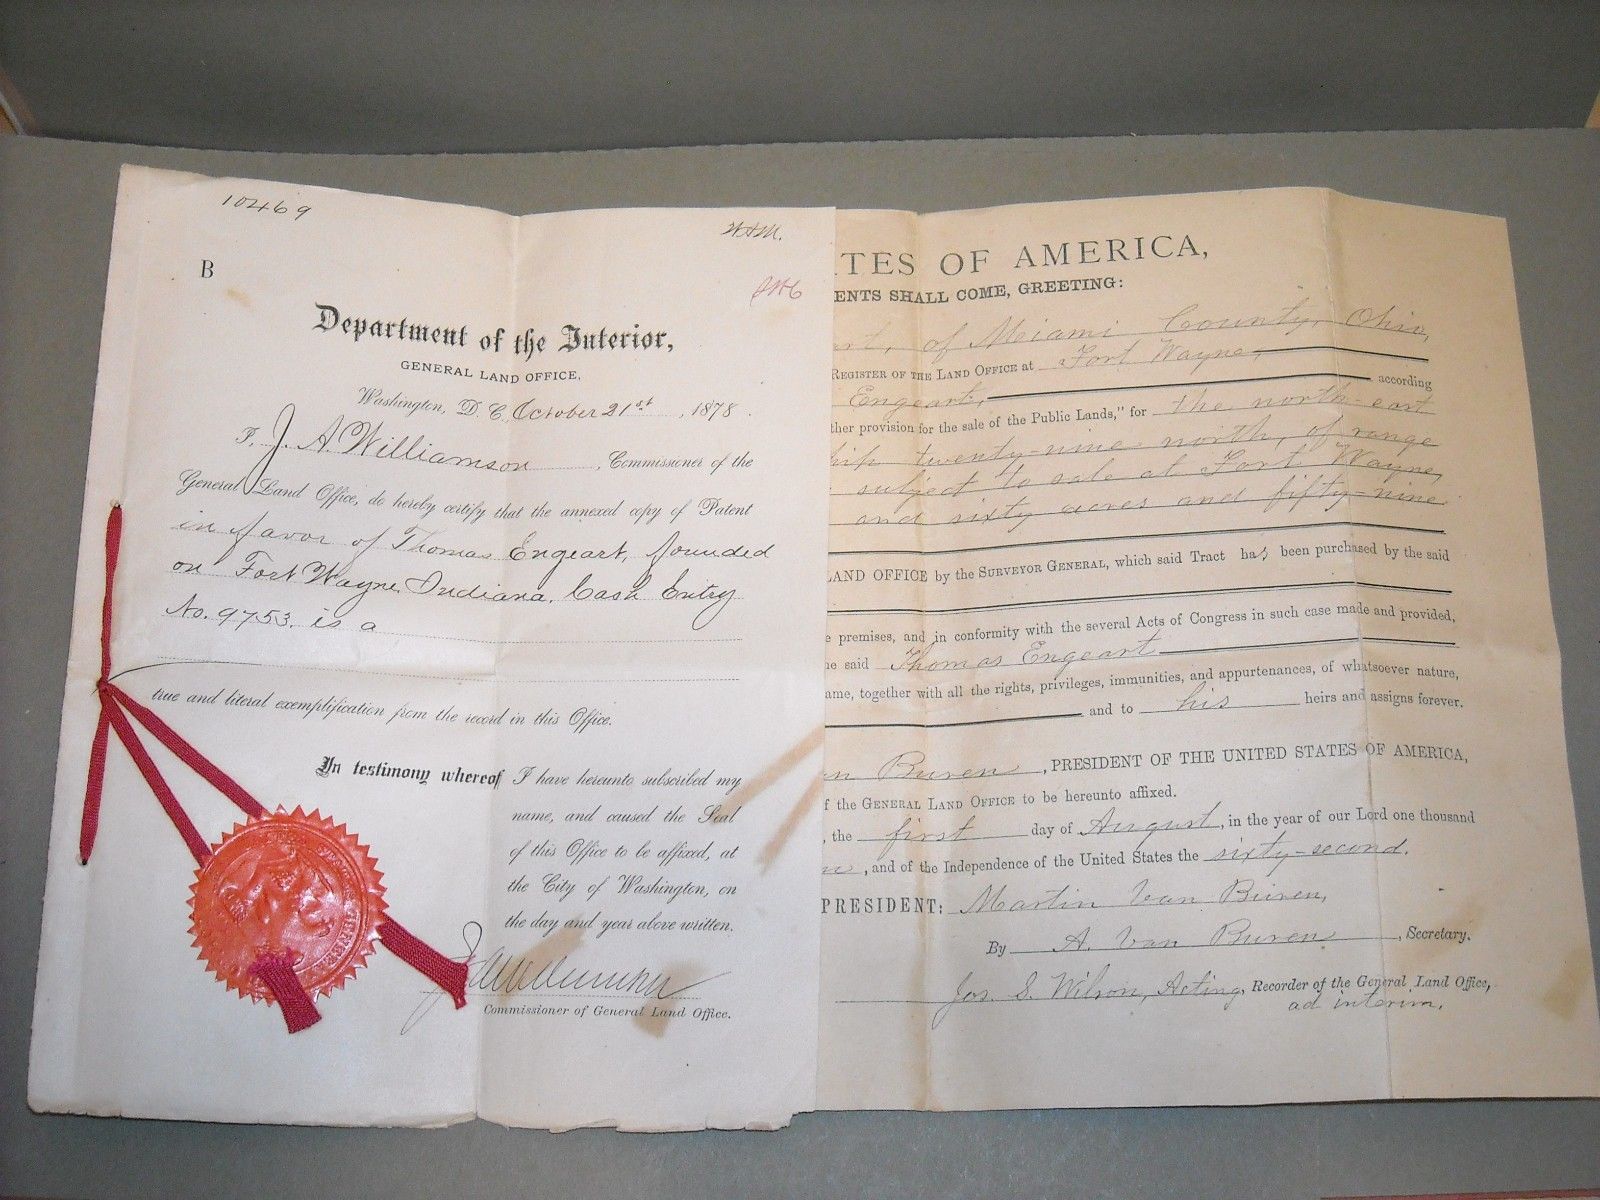 10469
W.A.M.
B
Department of the Interior,
GENERAL LAND OFFICE,
Washington, D. C., October 21st, 1878.
I, J. A. Williamson, Commissioner of the
General Land Office, do hereby certify that the annexed copy of Patent
in favor of Thomas Engeart, founded
on Fort Wayne, Indiana, Cash Entry
No. 9753, is a
true and literal exemplification from the record in this Office.
In testimony whereof I have hereunto subscribed my
name, and caused the Seal
of this Office to be affixed, at
the City of Washington, on
the day and year above written.
J A Williamson
Commissioner of General Land Office.
TES OF AMERICA,
ENTS SHALL COME, GREETING:
rt, of Miami County, Ohio,
REGISTER OF THE LAND OFFICE at Fort Wayne,
according
Engeart,
ther provision for the sale of the Public Lands," for the north-east
hip twenty-nine north, of range
subject to sale at Fort Wayne,
and sixty acres and fifty-nine
LAND OFFICE by the SURVEYOR GENERAL, which said Tract has been purchased by the said
e premises, and in conformity with the several Acts of Congress in such case made and provided,
he said Thomas Engeart
ame, together with all the rights, privileges, immunities, and appurtenances, of whatsoever nature,
and to his heirs and assigns forever.
an Buren, PRESIDENT OF THE UNITED STATES OF AMERICA,
f the GENERAL LAND OFFICE to be hereunto affixed.
, the first day of August, in the year of our Lord one thousand
, and of the Independence of the United States the sixty-second.
PRESIDENT: Martin Van Buren,
By A. Van Buren, Secretary.
Jos. S. Wilson, Acting, Recorder of the General Land Office,
ad interim.